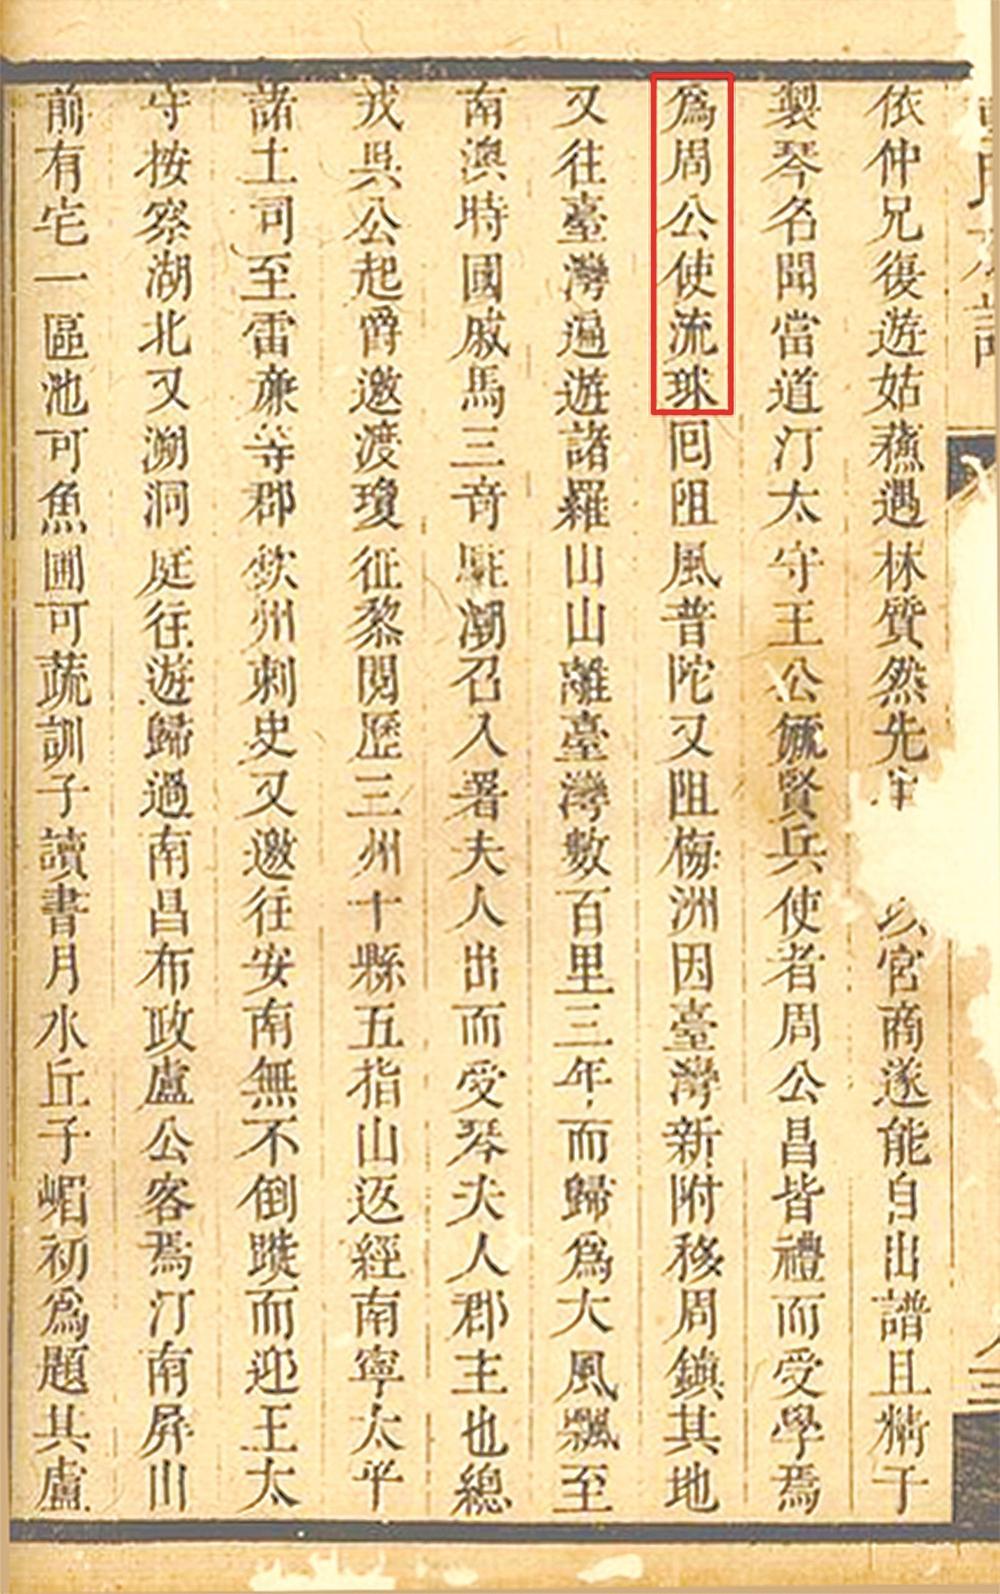 依仲兄復遊姑蘇遇林質然先宮商遂能自出譜且精于
製琴名聞當道汀太守王公毓賢兵使者周公昌皆禮而受學焉
爲周公使流球囘阻風普陀又阻梅洲因臺灣新附移周鎮其地
又往臺灣遍遊諸羅山山離臺灣數百里三年而歸爲大風飄至
南澳時國戚馬三奇駐潮召入署夫人出而受琴夫人郡主也總
戎吳公起爵邀渡瓊征黎閱歷三州十縣五指山返經南寧太平
諸土司至雷亷等郡欽州刺史又邀往安南無不倒蹝而迎王太
守按察湖北又溯洞庭往遊歸過南昌布政盧公客焉汀南屏山
前有宅一區池可魚圃可蔬訓子讀書月水丘子嵋初爲題其廬